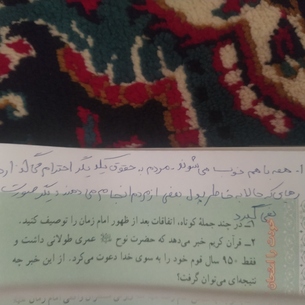 ۱. همه با هم دوست می شوند. مردم به حقوق یکدیگر احترام می گذارند
که حالا به خاطر پول بعضی از مردم انجام می دهند دیگر صورت
نمی گیرد
۱ــ در چند جملهٔ کوتاه، اتفاقات بعد از ظهور امام زمان را توصیف کنید.
۲ــ قرآن کریم خبر می‌دهد که حضرت نوح عمری طولانی داشت و
فقط ۹۵۰ سال قوم خود را به سوی خدا دعوت می‌کرد. از این خبر چه
نتیجه‌ای می‌توان گرفت!